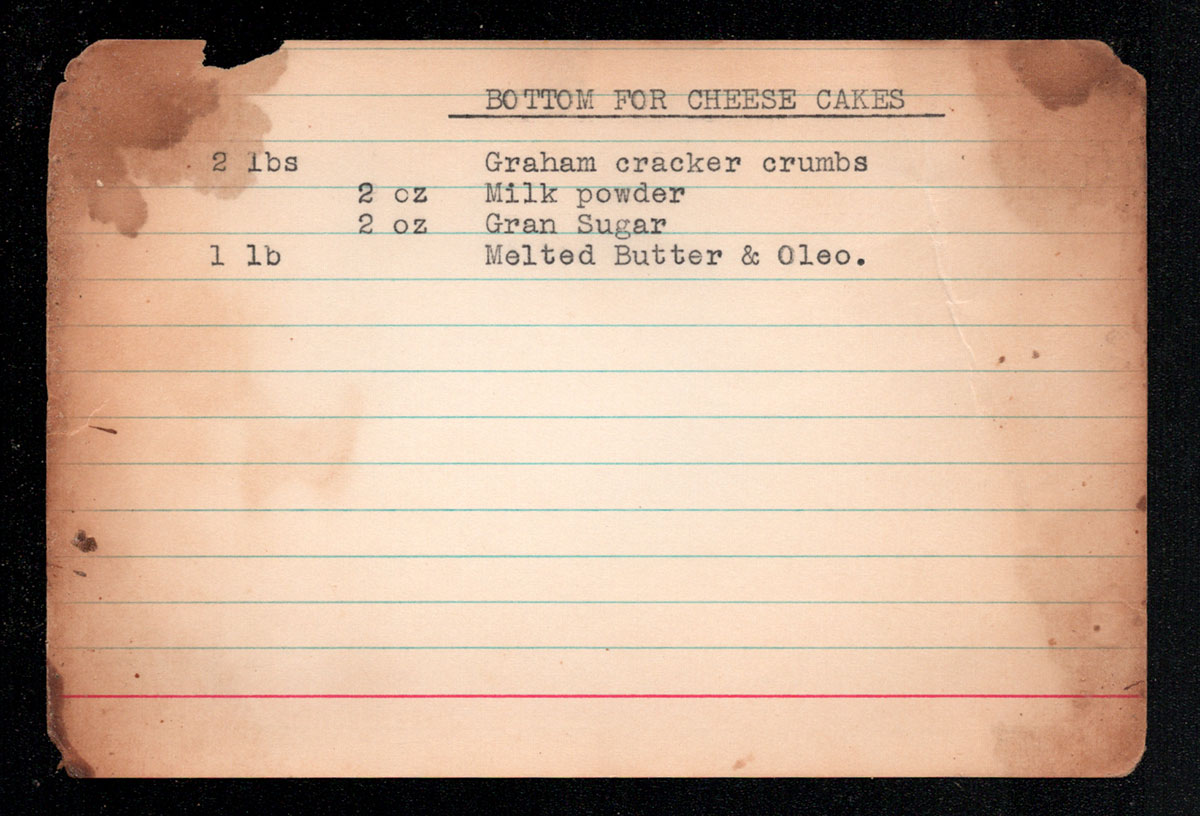 BOTTOM FOR CHEESE CAKES
2 lbs Graham cracker crumbs
2 oz Milk powder
2 oz Gran Sugar
1 lb Melted Butter & Oleo.